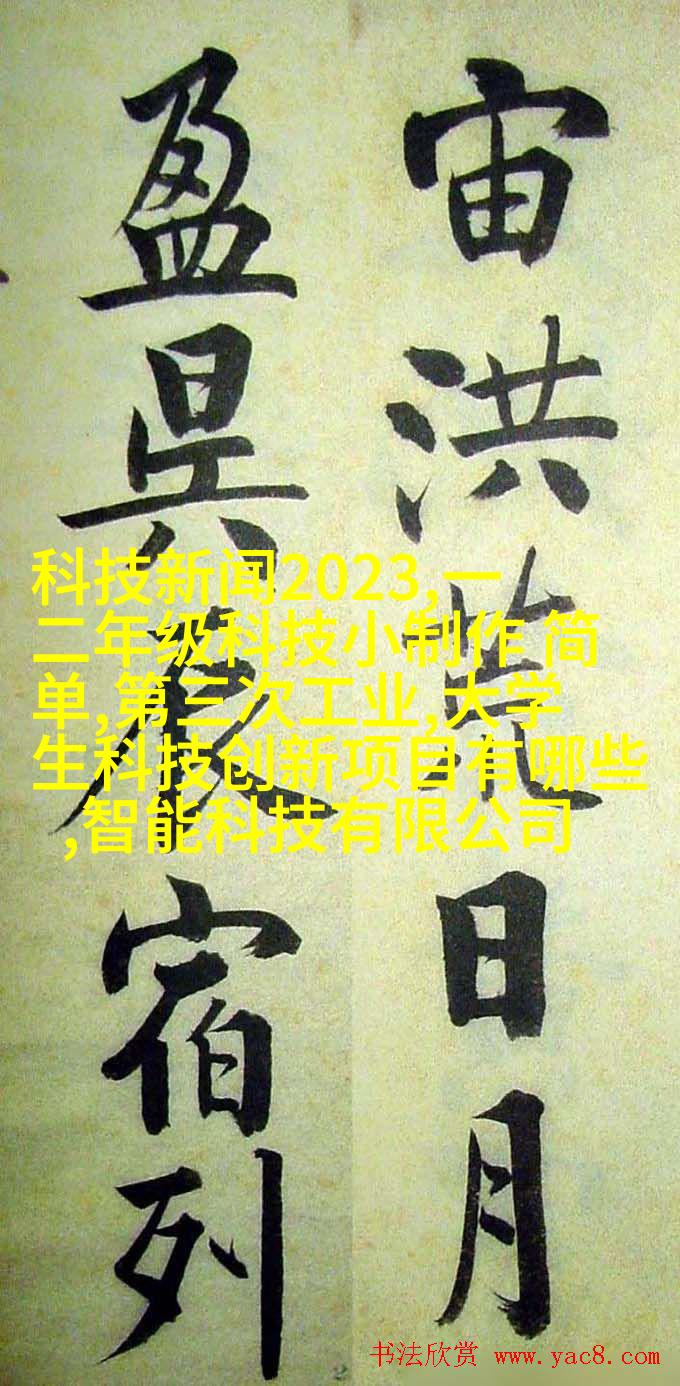 宙洪荒日月
盈昃辰宿列
科技新闻2023,一
二年级科技小制作 简
单,第三次工业,大学
生科技创新项目有哪些
,智能科技有限公司
书法欣赏 www.yac8.com